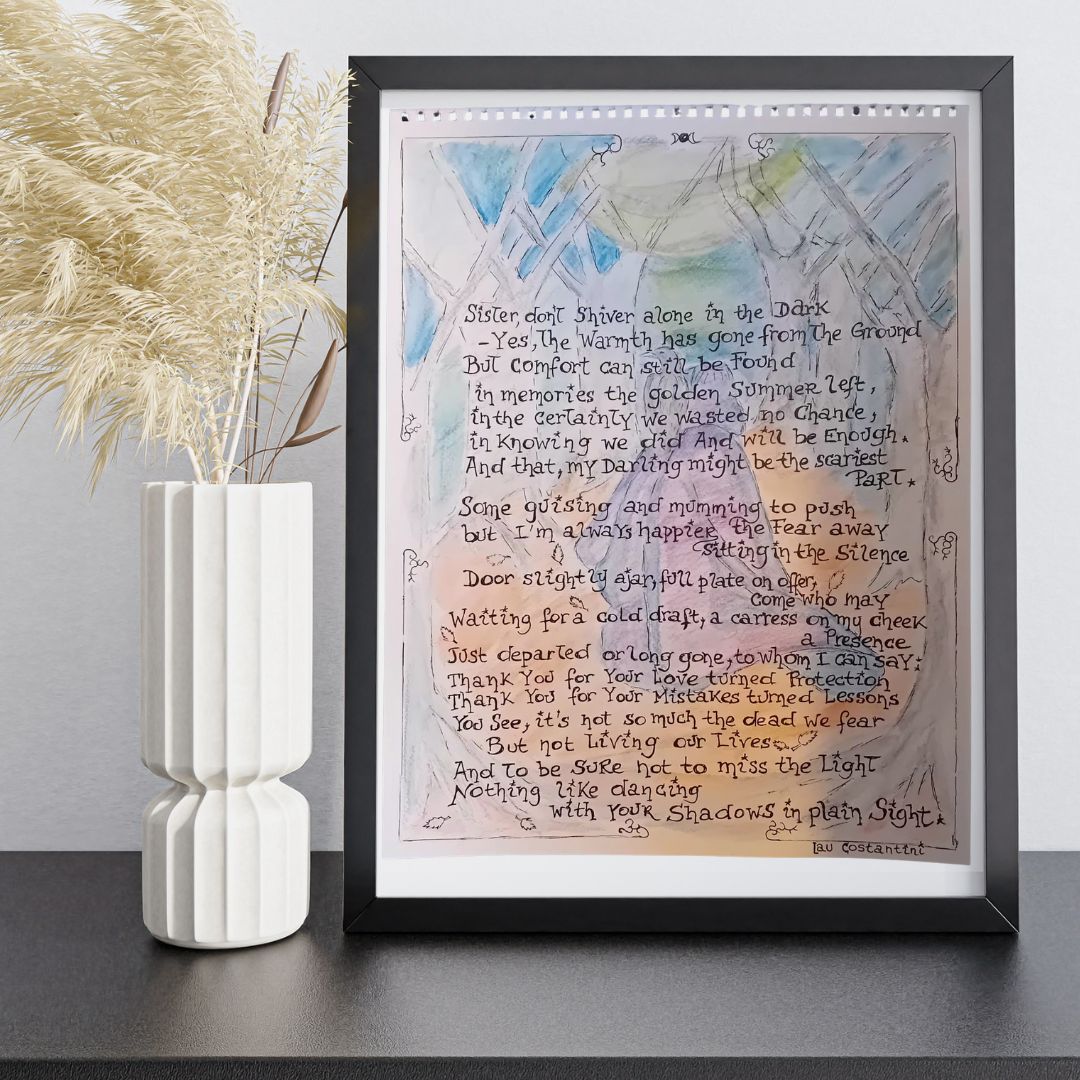 Sister, don't Shiver alone in the Dark
- Yes, The Warmth has gone from The Ground
BuT Comfort can still be Found
in memories the golden Summer left,
in the Certainty we wasted no Chance,
in Knowing we did And will be Enough.
And that, my Darling might be the scariest
PaRT.
Some guising and mumming to push
but I'm always happier the Fear away
sitting in the Silence
Door slightly ajar, full plate on offer,
come who may
Waiting for a cold draft, a carress on my cheek
a Presence
Just departed or long gone, to whom I can say:
Thank You for Your Love turned Protection
Thank You for Your Mistakes turned Lessons
You See, it's not so much the dead we fear
But not Living our Lives
And To be SuRe not to miss the Light
Nothing like dancing
with YouR Shadows in plain Sight.
Lau Costantini